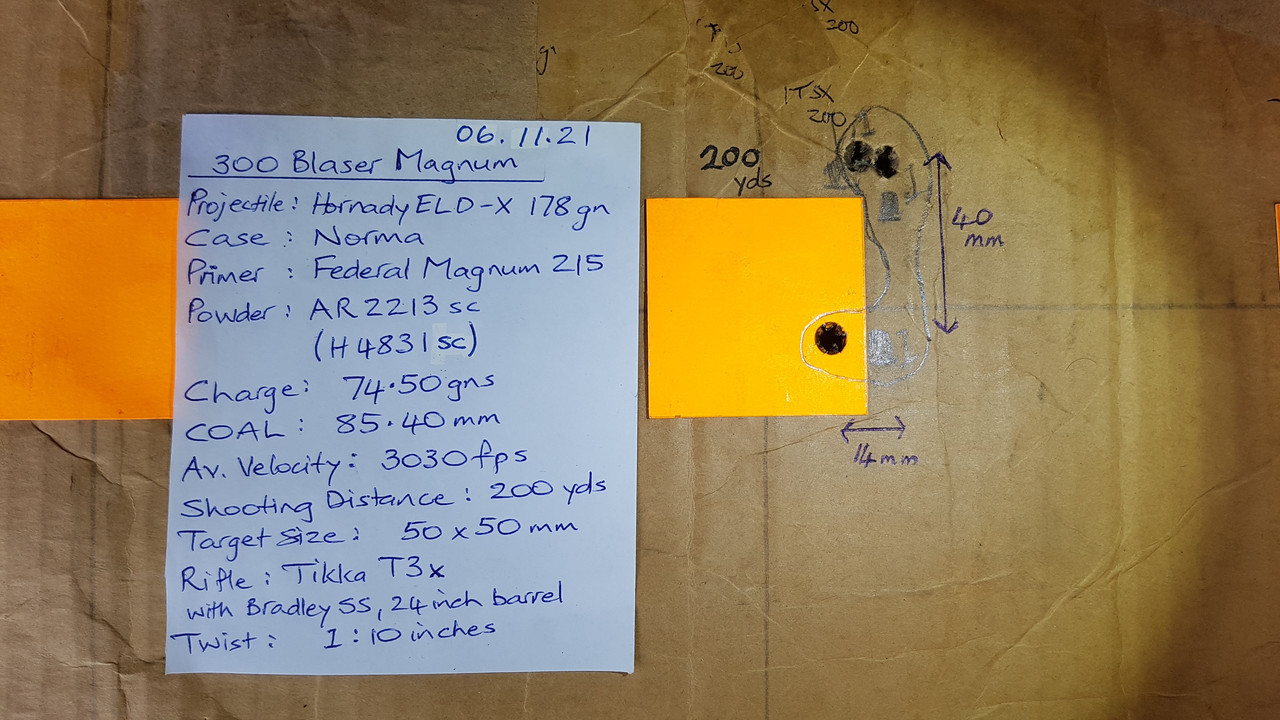 06.11.21
300 Blaser Magnum
Projectile: Hornady ELD-X 178gn
Case : Norma
Primer : Federal Magnum 215
Powder : AR2213 sc
(H4831 sc)
Charge: 74.50 gns
COAL : 85.40 mm
Av. Velocity: 3030 fps
Shooting Distance : 200 yds
Target Size : 50 x 50 mm
Rifle : Tikka T3x
with Bradley SS, 24 inch barrel
Twist : 1:10 inches
SX
200
200
TSX
200
200
yds
40
mm
14mm